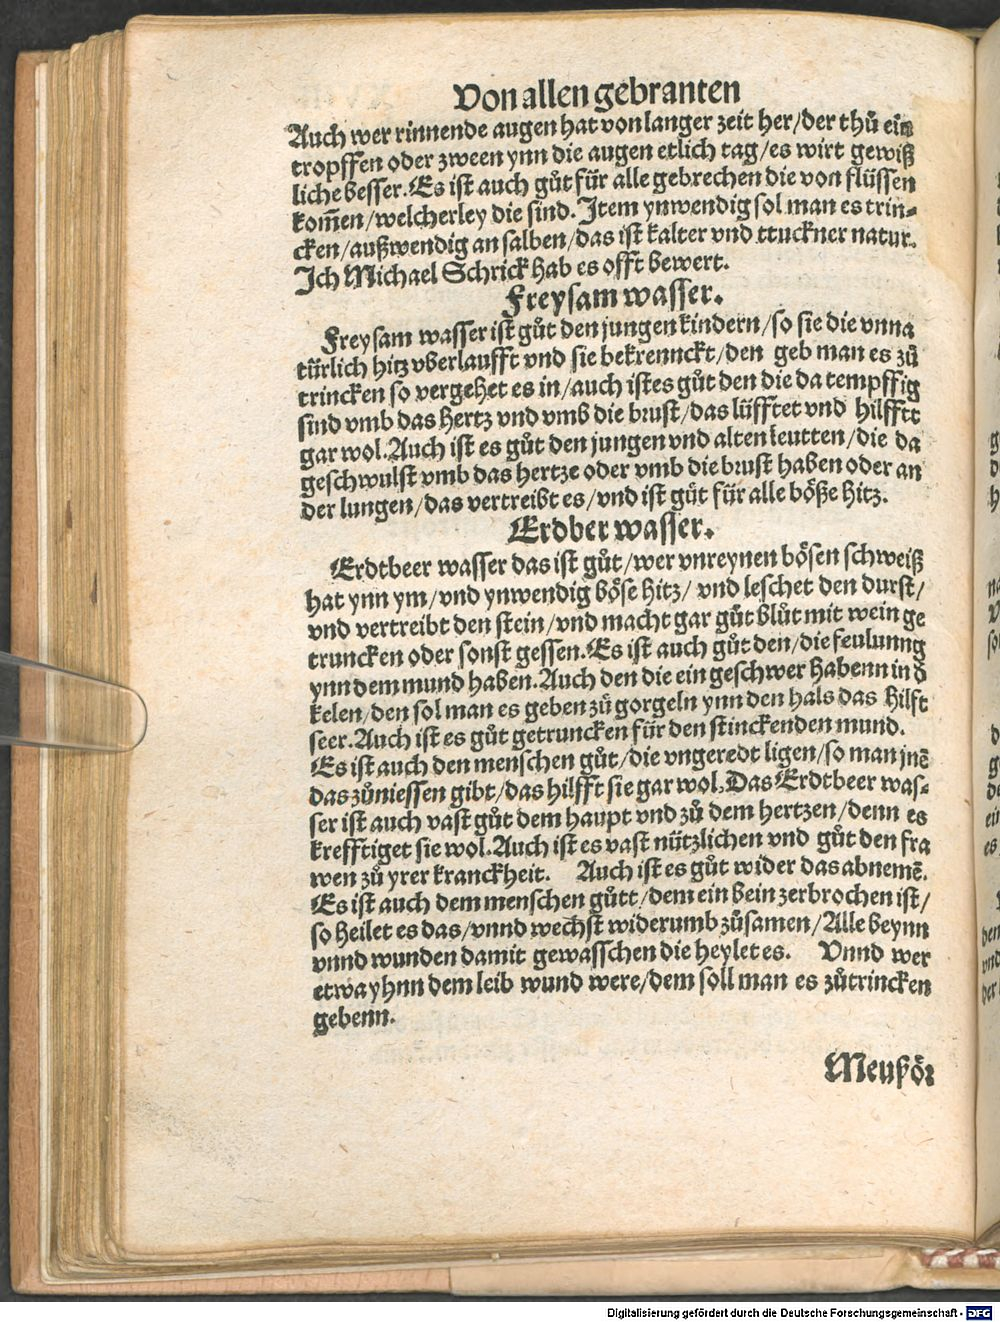 Von allen gebranten
Auch wer rinnende augen hat von langer zeit her/der thů ein
tropffen oder zween ynn die augen etlich tag/es wirt gewiß
liche besser. Es ist auch gůt für alle gebrechen die von flüssen
kom̄en/welcherley die sind. Item ynwendig sol man es trin⸗
cken/außwendig an salben/das ist kalter vnd ttuckner natur.
Ich Michael Schrick hab es offt bewert.
Freysam wasser.
Freysam wasser ist gůt den jungen kindern/so sie die vnna
türlich hitz vberlaufft vnd sie bekrennckt/den geb man es zů
trincken so vergehet es in/auch ist es gůt den die da tempffig
sind vmb das hertz vnd vmb die brust/das lüfftet vnd hilfftt
gar wol. Auch ist es gůt den jungen vnd alten leutten/die da
geschwulst vmb das hertze oder vmb die brust haben oder an
der lungen/das vertreibt es/vnd ist gůt für alle böße hitz.
Erdber wasser.
Erdtbeer wasser das ist gůt/wer vnreynen bösen schweiß
hat ynn ym/vnd ynwendig böse hitz/ vnd leschet den durst/
vnd vertreibt den stein/vnd macht gar gůt blůt mit wein ge
truncken oder sonst gessen. Es ist auch gůt den/die feulunng
ynn dem mund haben. Auch den die ein geschwer habenn in d̄
kelen/den sol man es geben zů gorgeln ynn den hals das hilft
seer. Auch ist es gůt getruncken für den stinckenden mund.
Es ist auch den menschen gůt/die vngeredt ligen/so man jnē
das zůniessen gibt/das hilfft sie gar wol. Das Erdtbeer was⸗
ser ist auch vast gůt dem haupt vnd zů dem hertzen/denn es
krefftiget sie wol. Auch ist es vast nützlichen vnd gůt den fra
wen zů yrer kranckheit. Auch ist es gůt wider das abnemē.
Es ist auch dem menschen gůtt/dem ein bein zerbrochen ist/
so heilet es das/vnnd wechst widerumb zůsamen/Alle beynn
vnnd wunden damit gewasschen die heylet es. Vnnd wer
etwa yhnn dem leib wund were/dem soll man es zůtrincken
gebenn.
Meußör
Digitalisierung gefördert durch die Deutsche Forschungsgemeinschaft - DFG